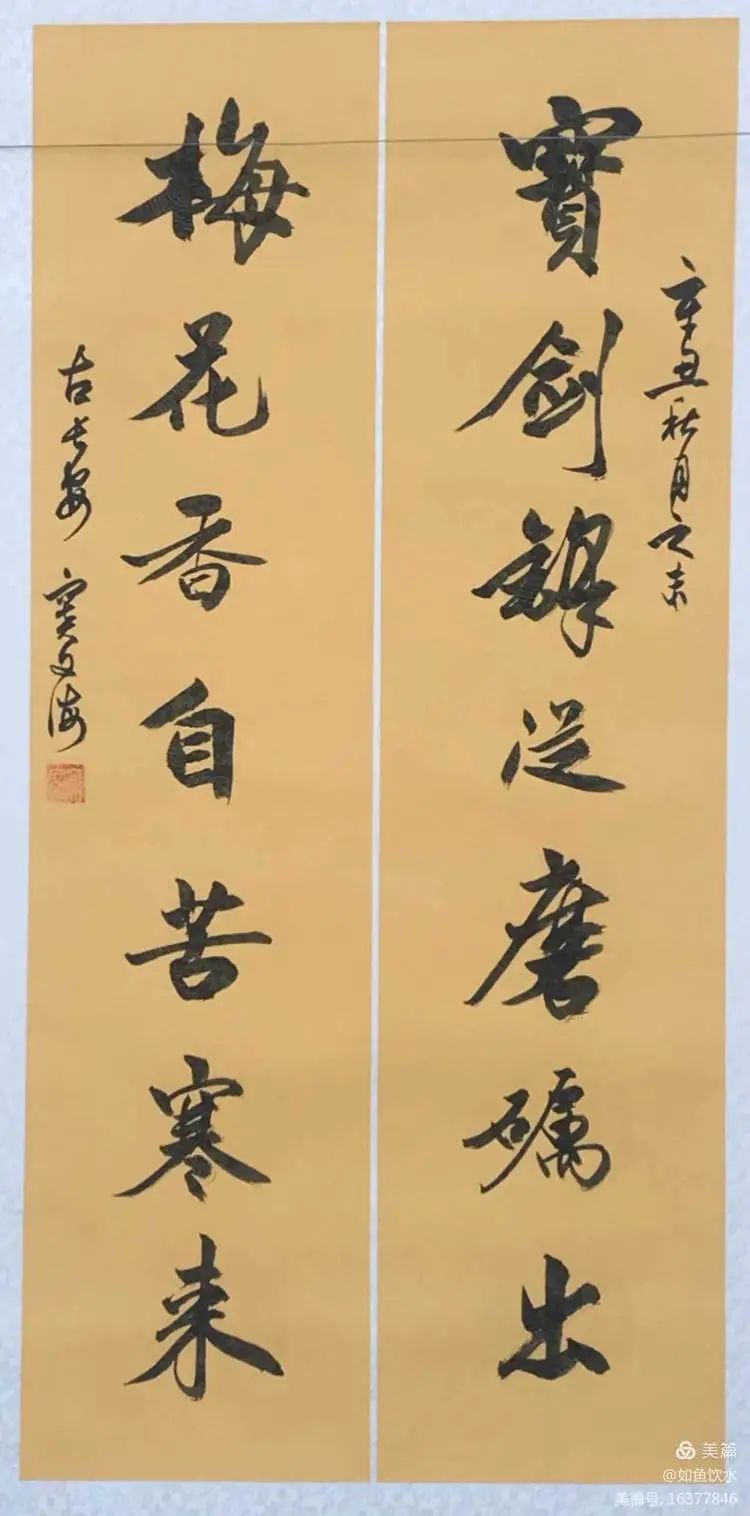 辛丑秋月之
寶劍鋒從磨礪出
梅花香自苦寒来
古長安 竇文海
美篇
@如鱼饮水
美篇号:16377846